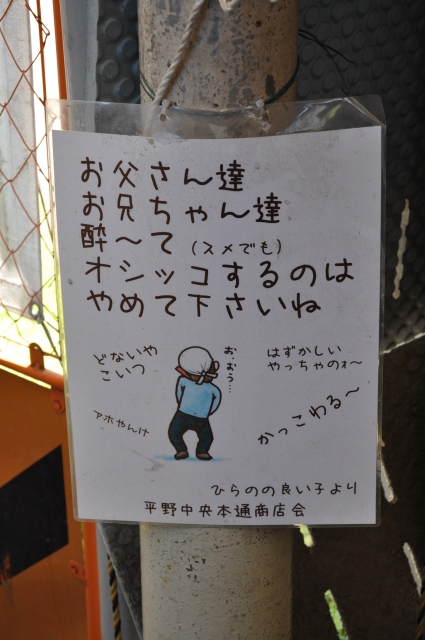 お父さん達
お兄ちゃん達
酔〜て(スメでも)
オシッコするのは
やめて下さいね
どないや
こいつ
お、おう…
はずかしい
やっちゃのォ〜
アホやんけ
かっこわる〜
ひらのの良い子より
平野中央本通商店会